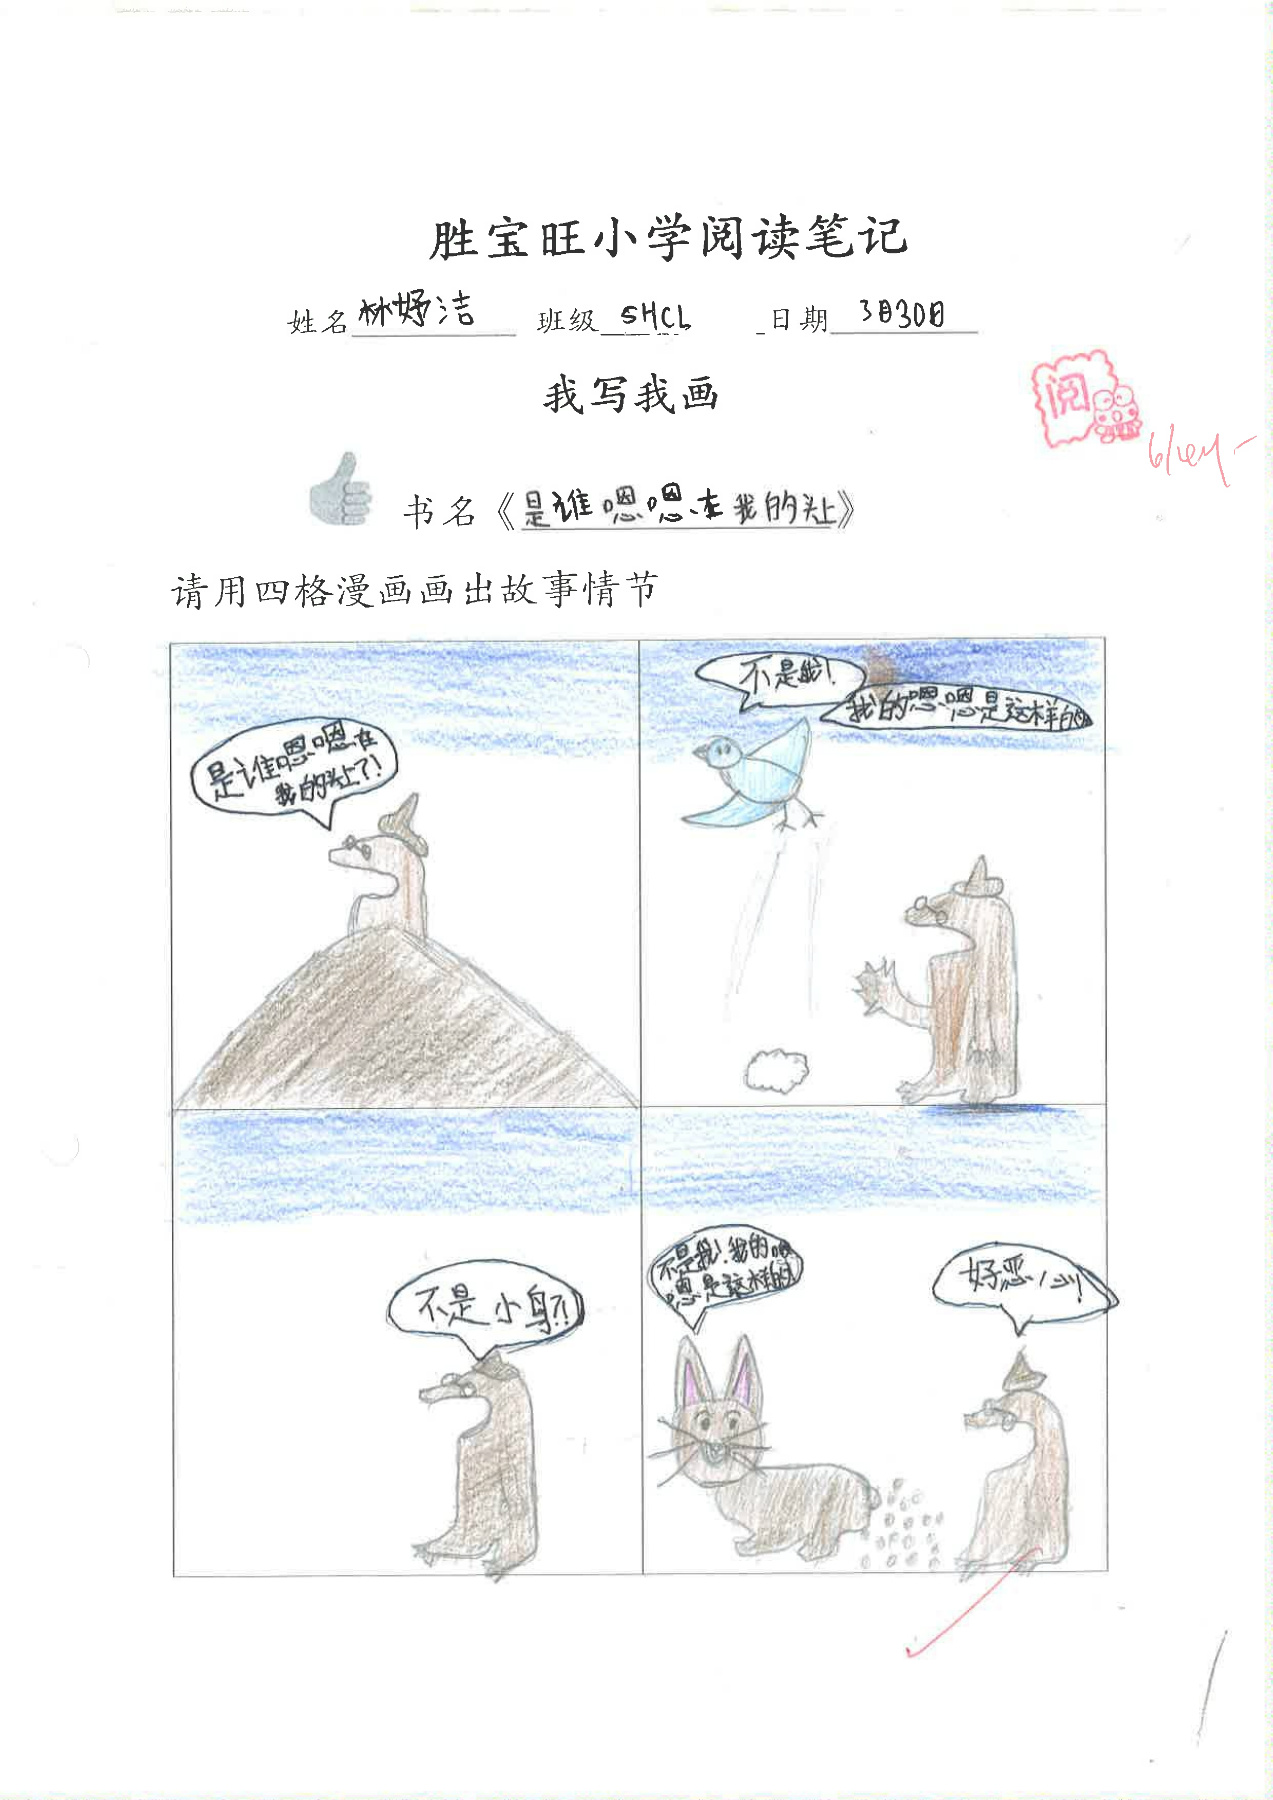 胜宝旺小学阅读笔记
姓名 林妤洁 班级 5HCL 日期 3月30日
我写我画
阅
书名《是谁嗯嗯在我的头上》
请用四格漫画画出故事情节
是谁嗯嗯在
我的头上?!
不是我!
我的嗯嗯是这样的
不是小鸟?!
不是我!我的嗯
嗯是这样的
好恶心!